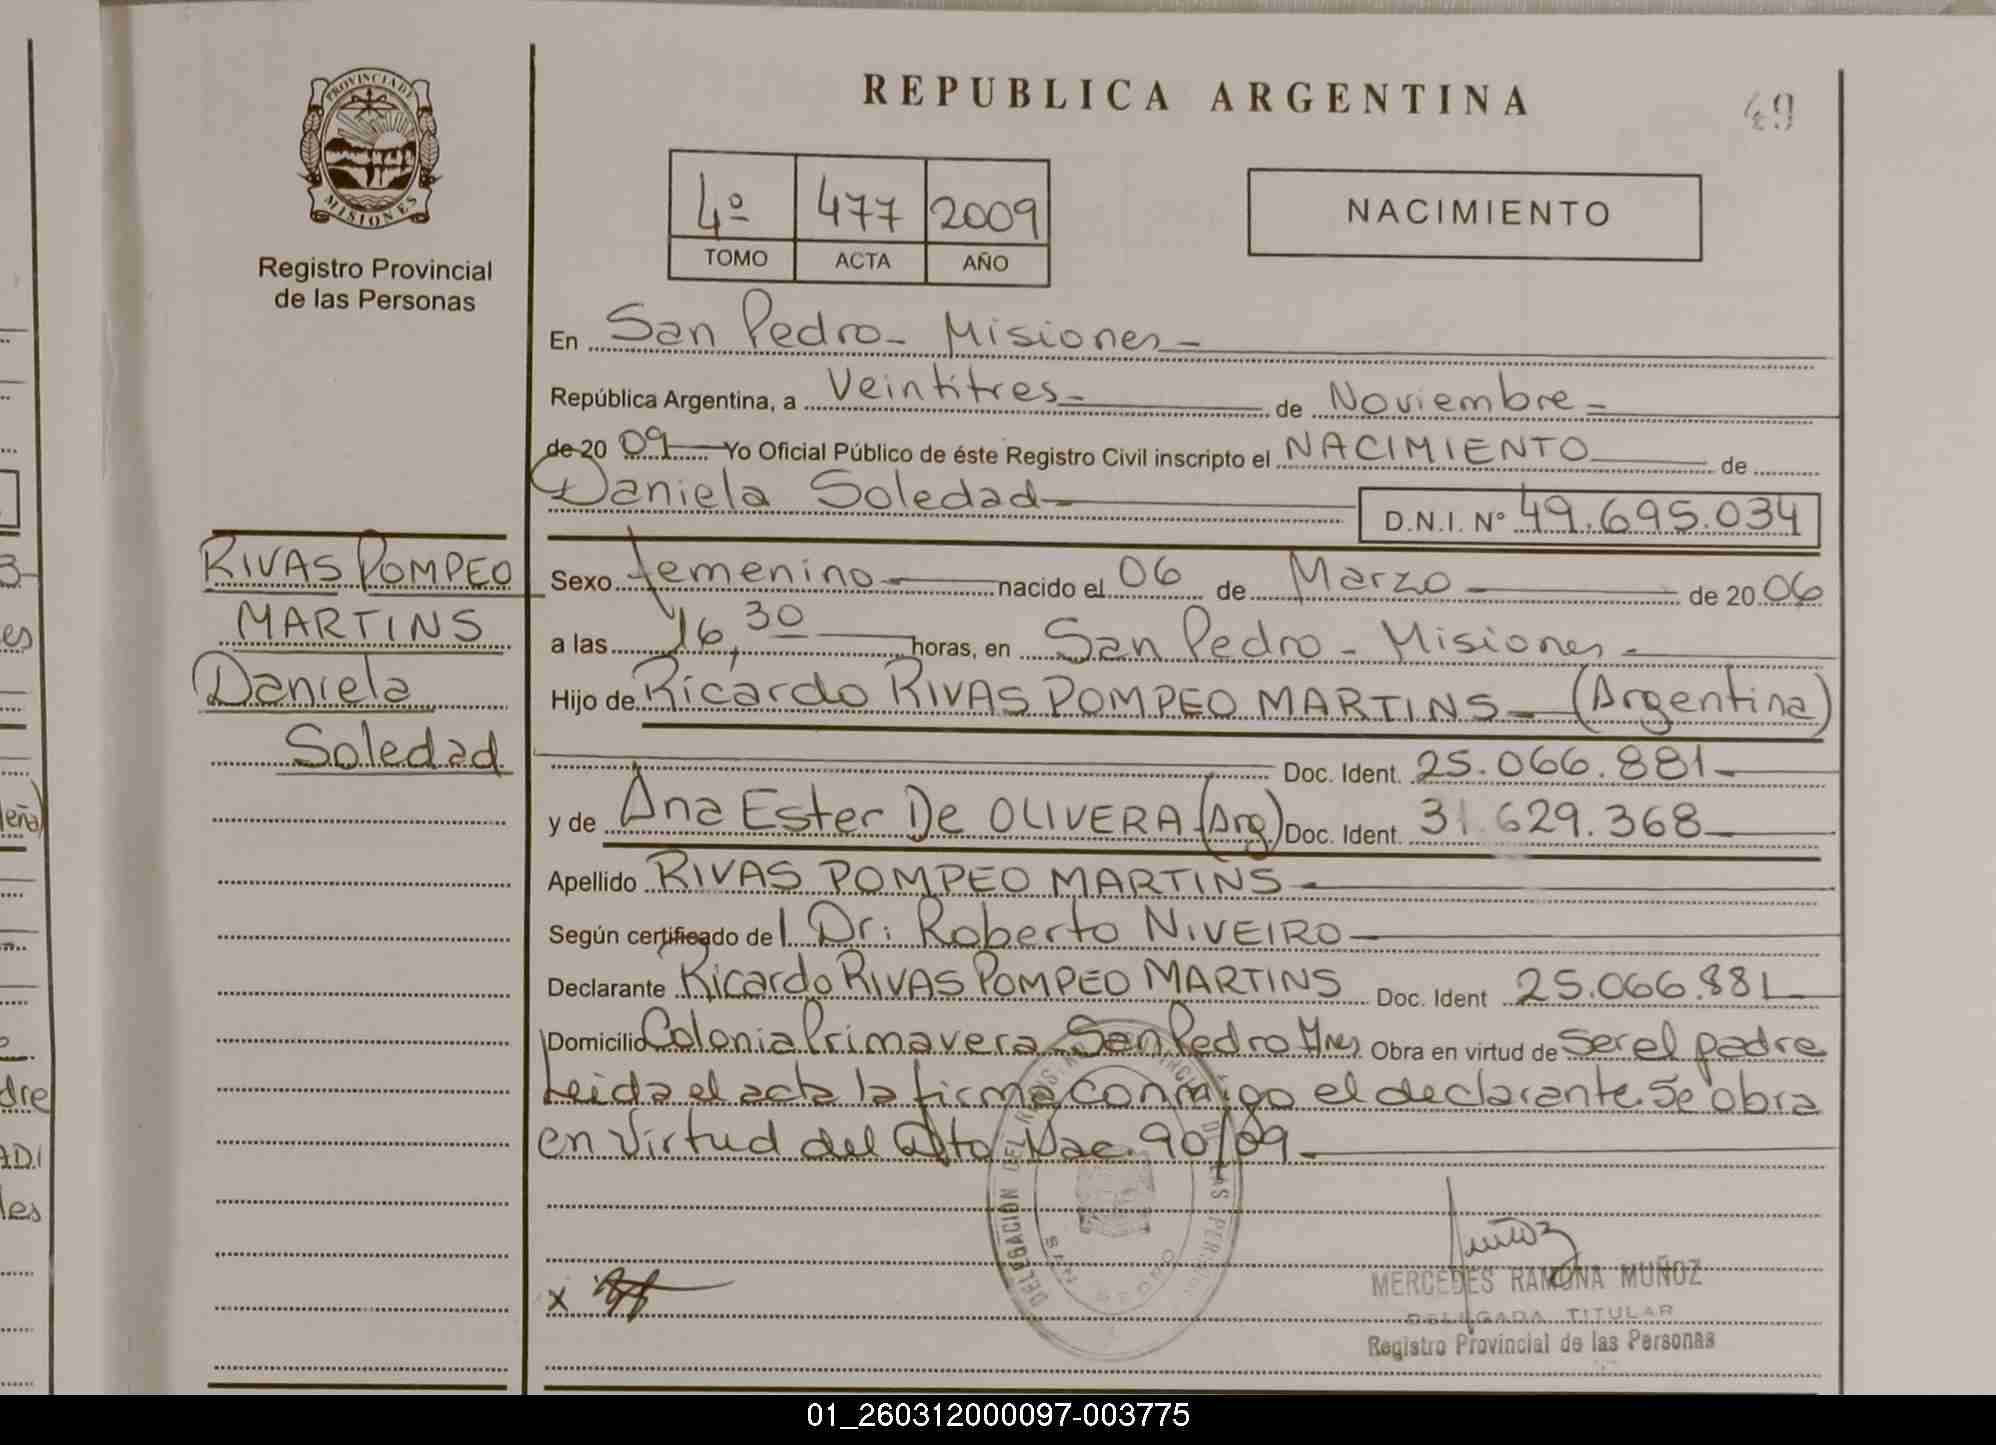 PROVINCIA DE MISIONES
Registro Provincial
de las Personas
REPUBLICA ARGENTINA
49
4º 477 2009
TOMO ACTA AÑO
NACIMIENTO
En San Pedro - Misiones -
República Argentina, a Veintitres - de Noviembre -
de 20 09 Yo Oficial Público de éste Registro Civil inscripto el NACIMIENTO de
Daniela Soledad - D.N.I. Nº 49.695.034
RIVAS POMPEO
MARTINS
Daniela
Soledad
Sexo femenino nacido el 06 de Marzo de 20 06
a las 16,30 horas, en San Pedro - Misiones -
Hijo de Ricardo RIVAS POMPEO MARTINS - (Argentina)
Doc. Ident. 25.066.881 -
y de Ana Ester De OLIVERA (Arg) Doc. Ident. 31.629.368 -
Apellido RIVAS POMPEO MARTINS -
Según certificado del Dr: Roberto NIVEIRO -
Declarante Ricardo RIVAS POMPEO MARTINS Doc. Ident 25.066.881
Domicilio Colonia Primavera San Pedro Mnes Obra en virtud de Ser el padre
Leida el acta la firma conmigo el declarante. Se obra
en virtud del Dto Nac. 90/09 -
x
MERCEDES RAMONA MUÑOZ
DELEGADA TITULAR
Registro Provincial de las Personas
01_260312000097-003775